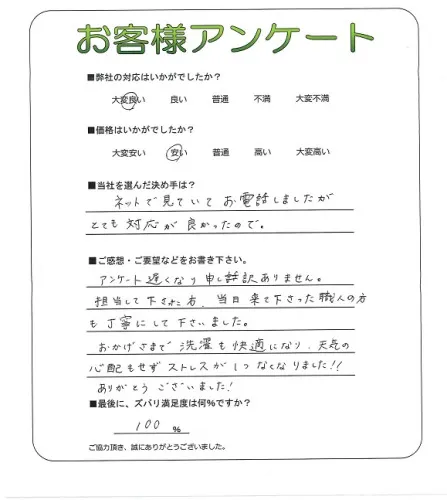 お客様アンケート
■弊社の対応はいかがでしたか?
大変良い 良い 普通 不満 大変不満
■価格はいかがでしたか?
大変安い 安い 普通 高い 大変高い
■当社を選んだ決め手は?
ネットで見ていて お電話しましたが
とても対応が良かったので。
■ご感想・ご要望などをお書き下さい。
アンケート遅くなり申し訳ありません。
担当して下された方、当日来て下さった職人の方
も丁寧にして下さいました。
おかげさまで洗濯も快適になり、天気の
心配もせずストレスが1つなくなりました!!
ありがとうございました!
■最後に、ズバリ満足度は何%ですか?
100 %
ご協力頂き、誠にありがとうございました。